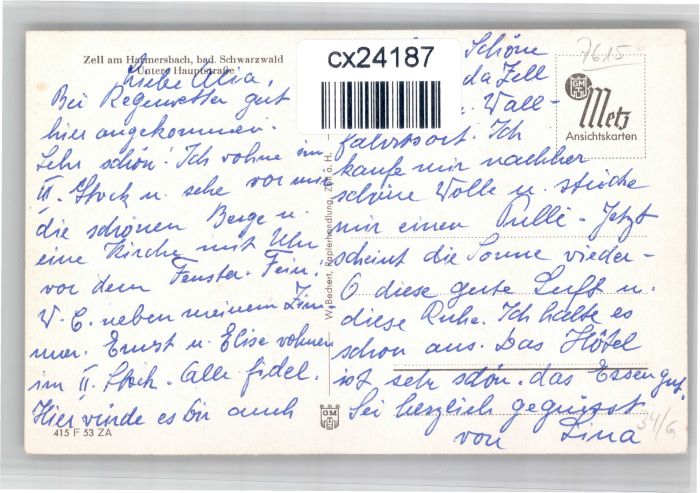 Zell am Harmersbach, bad. Schwarzwald
Untere Hauptstraße
Liebe Alia,
Bei Regenwetter gut
hier angekommen.
Sehr schön! Ich wohne im
II. Stock u. sehe vor mir
die schönen Berge u.
eine Kirche mit Uhr
vor dem Fenster. Fein!
W. C. neben meinem Zim-
mer. Ernst u. Elise wohnen
im II. Stock. Alle fidel.
Hier würde es Dir auch
415 F 53 ZA
cx24187
W. Bechert, Papierhandlung, Zell a. H.
GM
Schöne
da Zell
Wall-
fahrtsort. Ich
kaufe mir nachher
schöne Wolle u. stricke
mir einen Pulli. Jetzt
scheint die Sonne wieder-
O diese gute Luft u.
diese Ruhe. Ich halte es
schon aus. Das Hôtel
ist sehr schön, das Essen gut.
Sei herzlich gegrüsst
von Lina
7615
GM
Metz
Ansichtskarten
34/6